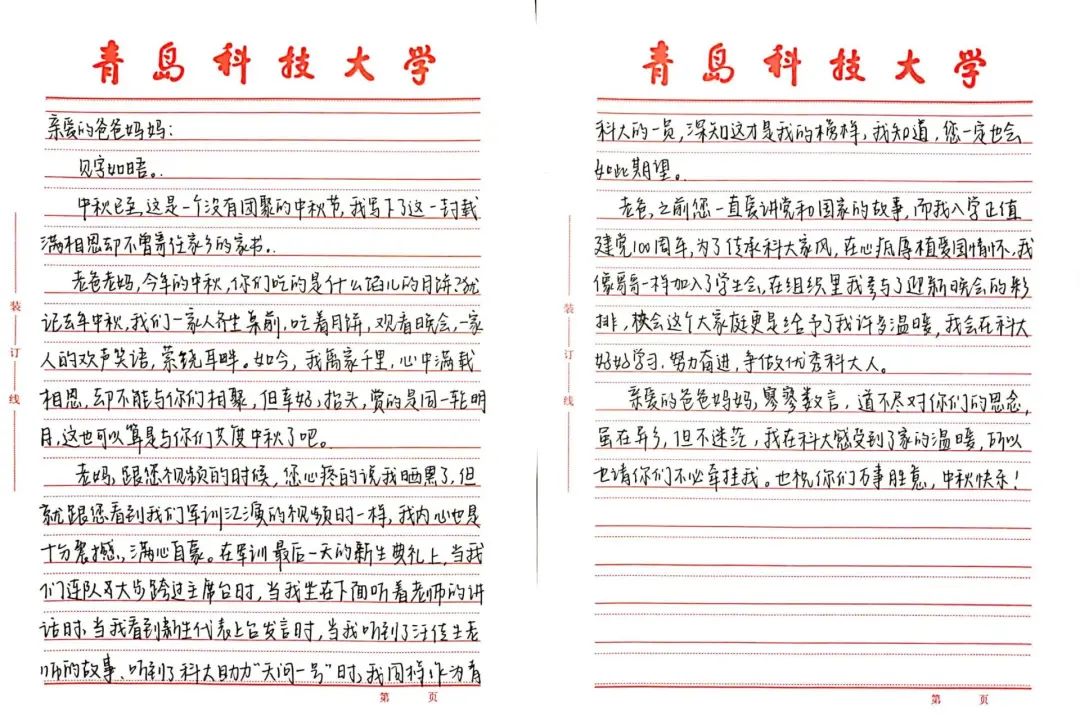 青岛科技大学
亲爱的爸爸妈妈：
见字如晤。
中秋已至，这是一个没有团聚的中秋节，我写下了这一封载
满相思却不曾寄住家乡的家书。
老爸老妈，今年的中秋，你们吃的是什么馅儿的月饼？犹
记去年中秋，我们一家人齐坐桌前，吃着月饼，观看晚会，一家
人的欢声笑语，萦绕耳畔。如今，我离家千里，心中满载
相思，却不能与你们相聚，但幸好，抬头，赏的是同一轮明
月，这也可以算是与你们共度中秋了吧。
老妈，跟您视频的时候，您心疼的说我晒黑了，但
就跟您看到我们军训汇演的视频时一样，我内心也是
十分震撼，满心自豪。在军训最后一天的新生典礼上，当我
们连队大步跨过主席台时，当我坐在下面听着老师的讲
话时、当我看到新生代表上台发言时，当我听到了汪传生老
师的故事、听到了科大助力“天问一号”时，我同样作为青
第 页
装
订
线
青岛科技大学
科大的一员，深知这才是我的榜样，我知道，您一定也会
如此期望。
老爸，之前您一直爱讲党和国家的故事，而我入学正值
建党100周年，为了传承科大家风，在心底厚植爱国情怀，我
像哥哥一样加入了学生会，在组织里我参与了迎新晚会的彩
排，校会这个大家庭更是给予了我许多温暖，我会在科大
好好学习，努力奋进，争做优秀科大人。
亲爱的爸爸妈妈，寥寥数言，道不尽对你们的思念，
虽在异乡，但不迷茫，我在科大感受到了家的温暖，所以
也请你们不必牵挂我。也祝你们万事胜意，中秋快乐！
第 页
装
订
线